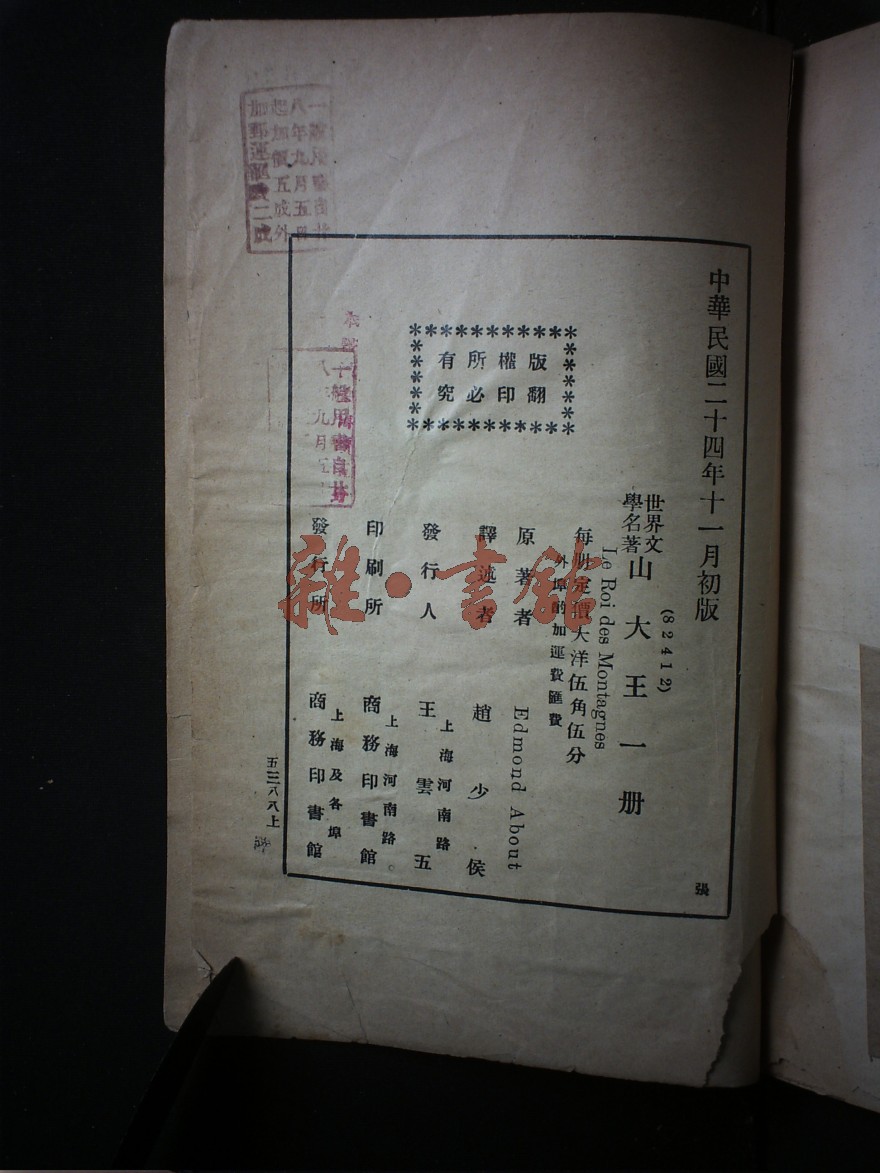 中華民國二十四年十一月初版
(82412)
世界文學名著 山大王一册
Le Roi des Montagnes
每册定價大洋伍角伍分
外埠酌加運費匯費
原著者 Edmond About
譯述者 趙少侯
發行人 王雲五
上海河南路
印刷所 商務印書館
上海河南路
發行所 商務印書館
上海及各埠
版權所有
翻印必究
張
五三八八上
八年九月五日
起加價五成外
加郵運匯費二成
雜·書館